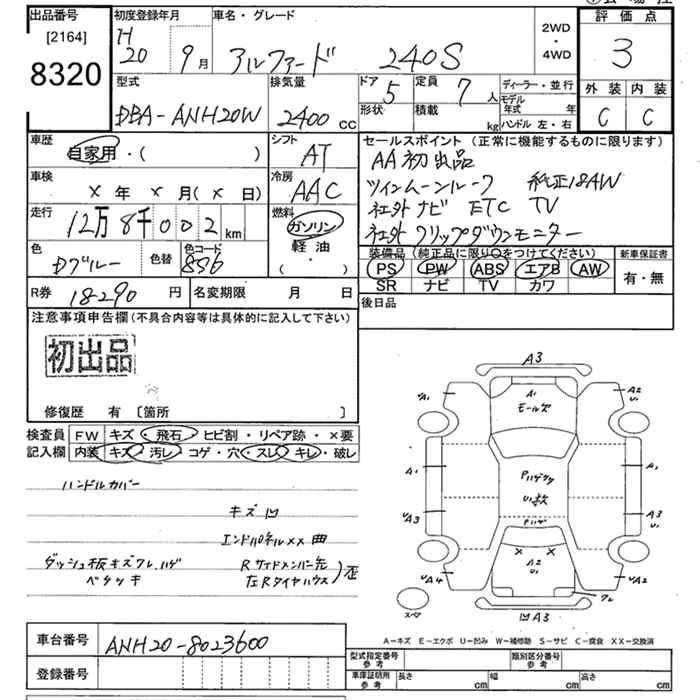 出品番号 初度登録年月 車名・グレード 2WD 評価点
[2164] H 4WD
8320 20 9月 アルファード 240S 3
型式 排気量 ドア 5 定員 7人 ディーラー・並行 外装 内装
DBA-ANH20W 2400cc 形状 積載 kg モデル年式 年 C C
ハンドル 左・右
車歴 シフト セールスポイント (正常に機能するものに限ります)
自家用・( ) AT AA初出品
車検 冷房 ツインムーンルーフ 純正18AW
× 年 × 月(× 日) AAC 社外ナビ ETC TV
走行 燃料 社外フリップダウンモニター
12万8千002km ガソリン
色 色替 色コード 軽油 装備品 (純正品に限り○をつけてください) 新車保証書
Dブルー ・( ) PS PW ABS エアB AW 有・無
SR ナビ TV カワ
R券 18290円 名変期限 月 日 後日品
注意事項申告欄(不具合内容等は具体的に記入して下さい)
初出品
修復歴 有 〔箇所 〕
検査員 FW キズ・飛石・ヒビ割・リペア跡・×要
記入欄 内装 キズ・汚レ・コゲ・穴・スレ・キレ・破レ
ハンドルカバー
キズ凹
エンドパネルXX曲
ダッシュ板キズスレ.ハゲ Rサイドメンバー先
ベタツキ 左Rタイヤハウス)歪
A3
A1 A1 A2
モール欠 U1
A1 Pハゲケケ A1
U1数
UA3 Pハゲ A3
U1
× ×
A2
UA4 U1 UA2
スペア 凹A3
A-キズ E-エクボ U-凹み W-補修跡 S-サビ C-腐食 XX-交換済
車台番号 ANH20-8023600
型式指定番号 参考 類別区分番号 参考
登録番号 車庫証明用 参考 長さ cm 幅 cm 高さ cm